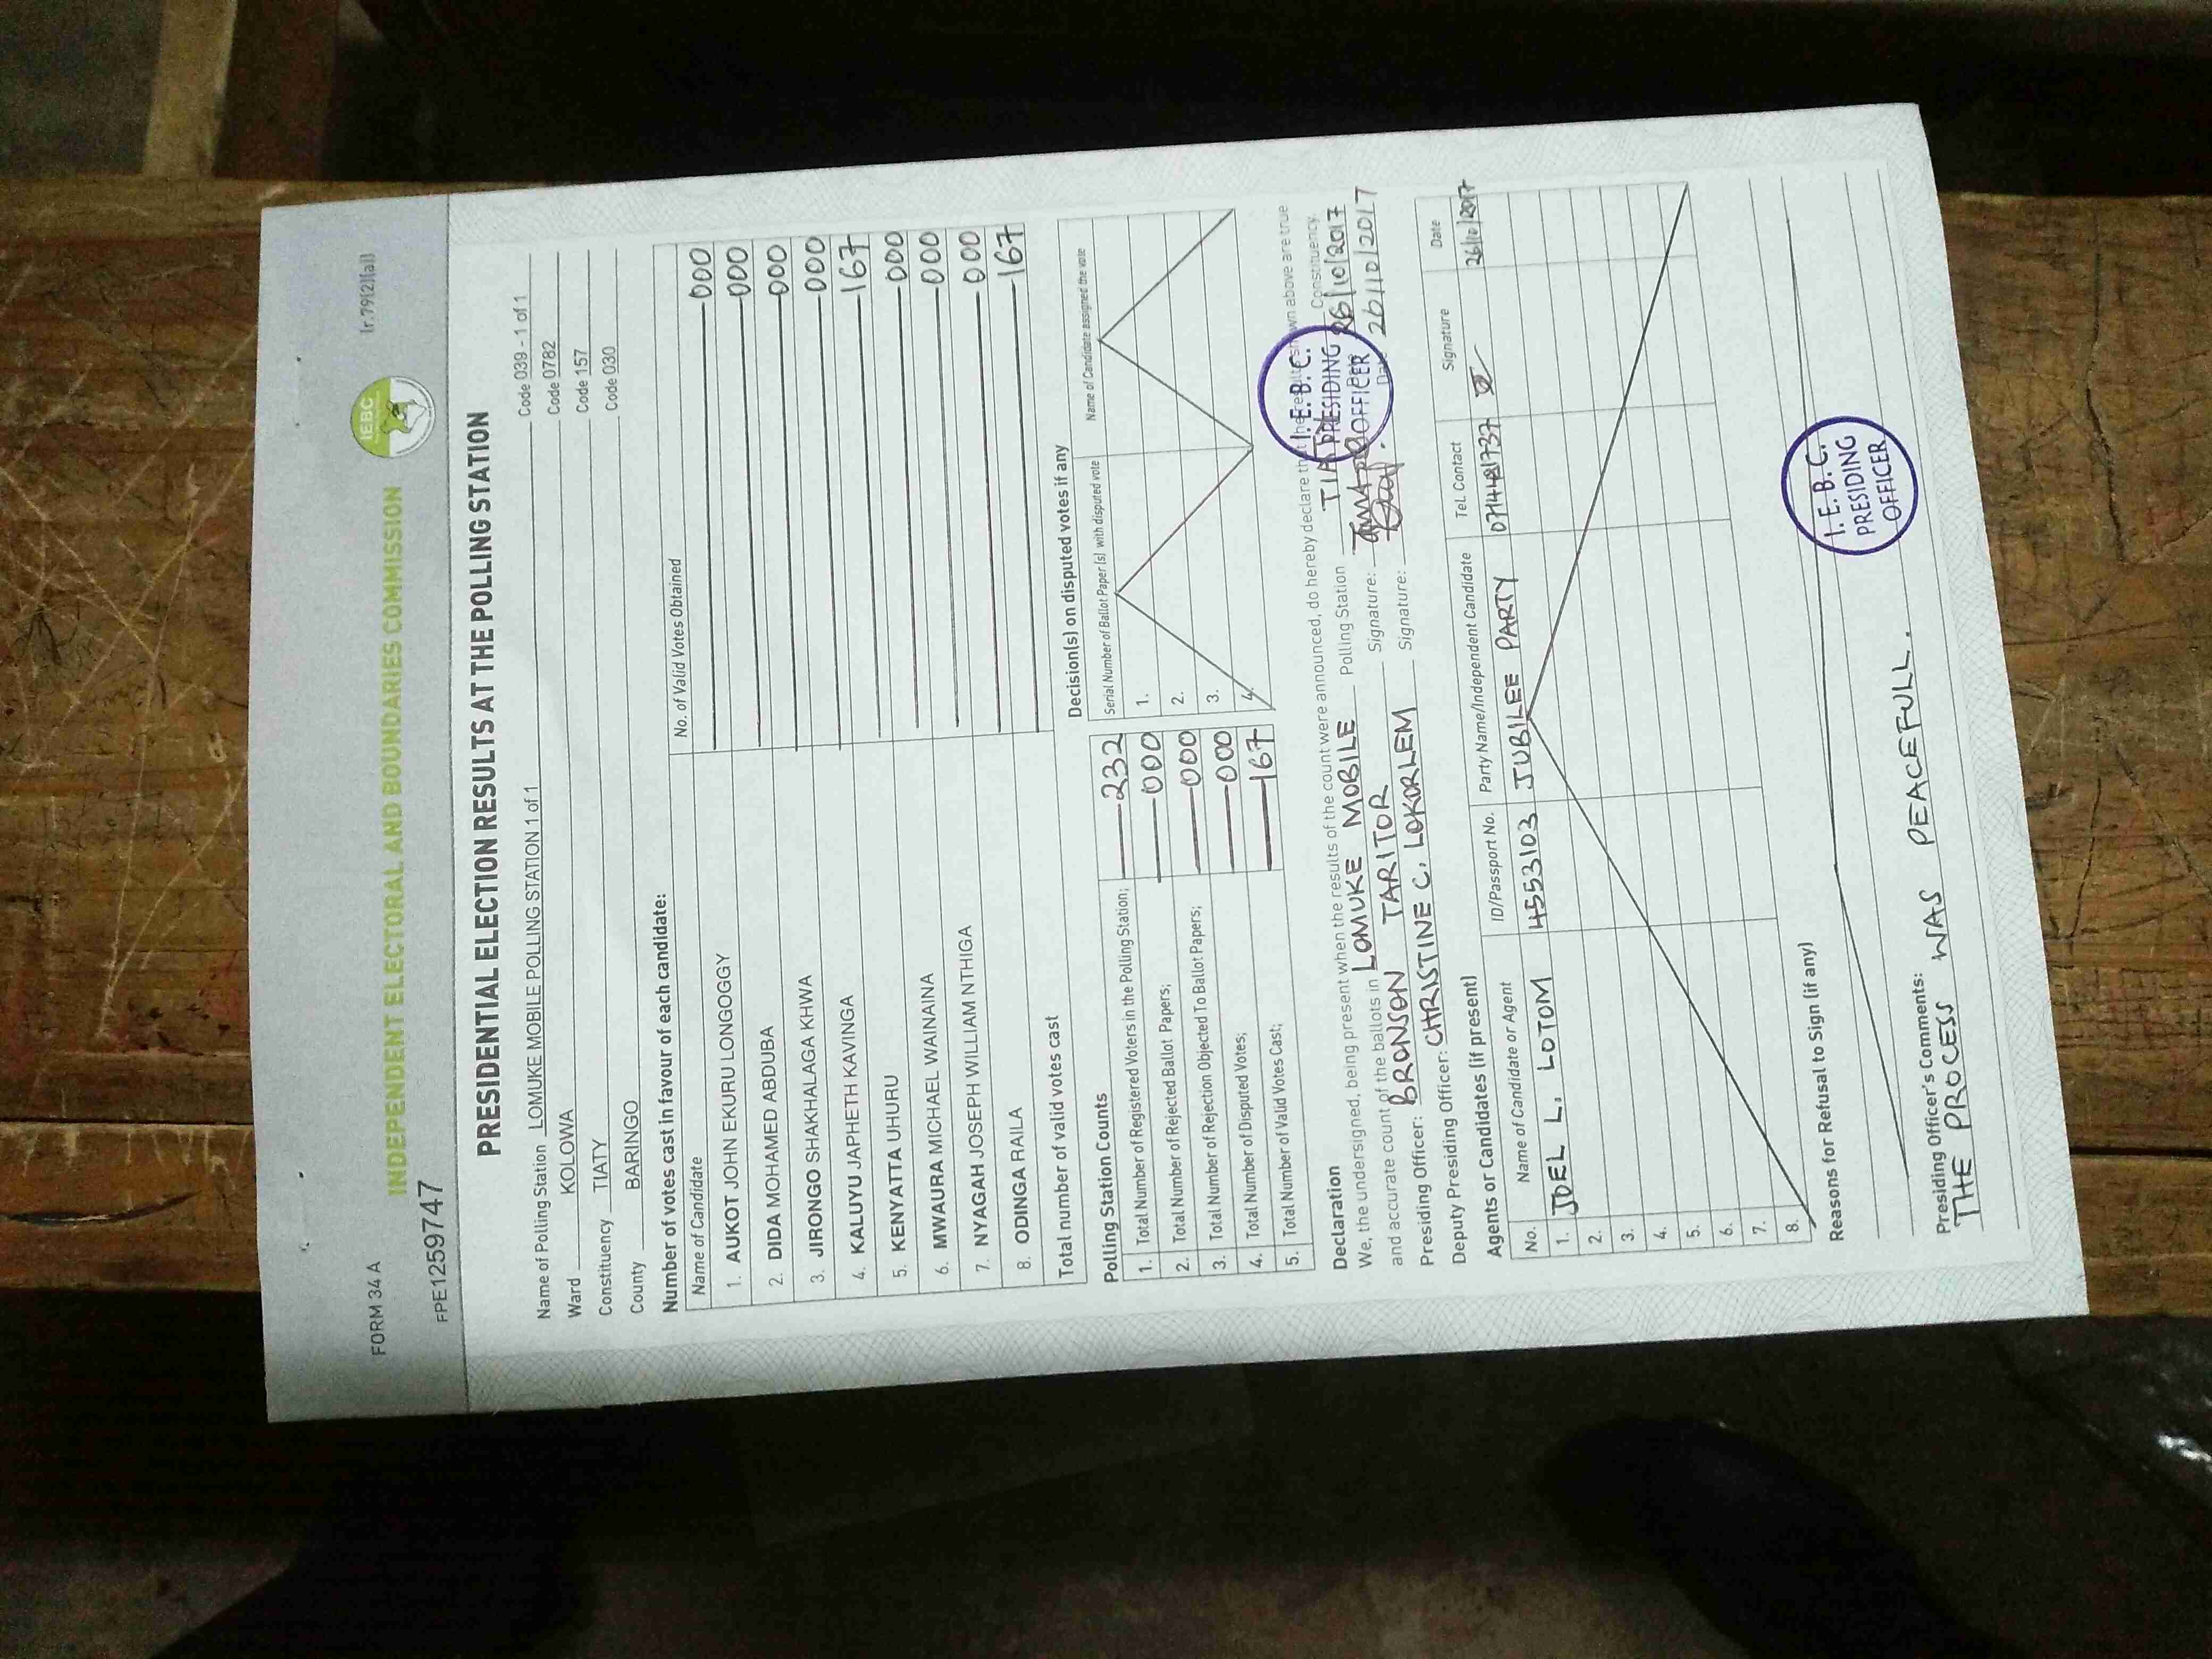 FORM 34 A
Ir.79(2)(a)]
INDEPENDENT ELECTORAL AND BOUNDARIES COMMISSION
IEBC
FPE1259747
PRESIDENTIAL ELECTION RESULTS AT THE POLLING STATION
Name of Polling Station LOMUKE MOBILE POLLING STATION 1 of 1 Code 039 - 1 of 1
Ward KOLOWA Code 0782
Constituency TIATY Code 157
County BARINGO Code 030
Number of votes cast in favour of each candidate:
Name of Candidate No. of Valid Votes Obtained
1. AUKOT JOHN EKURU LONGOGGY 000
2. DIDA MOHAMED ABDUBA 000
3. JIRONGO SHAKHALAGA KHWA 000
4. KALUYU JAPHETH KAVINGA 000
5. KENYATTA UHURU 167
6. MWAURA MICHAEL WAINAINA 000
7. NYAGAH JOSEPH WILLIAM NTHIGA 000
8. ODINGA RAILA 000
Total number of valid votes cast 167
Polling Station Counts
1. Total Number of Registered Voters in the Polling Station; 232
2. Total Number of Rejected Ballot Papers; 000
3. Total Number of Rejection Objected To Ballot Papers; 000
4. Total Number of Disputed Votes; 000
5. Total Number of Valid Votes Cast; 167
Decision(s) on disputed votes if any
Serial Number of Ballot Paper (s) with disputed vote Name of Candidate assigned the vote
1.
2.
3.
4.
Declaration
We, the undersigned, being present when the results of the count were announced, do hereby declare that the results shown above are true
and accurate count of the ballots in LOMUKE MOBILE Polling Station Constituency.
Presiding Officer: BRONSON TARITOR Signature: 26/10/2017
Deputy Presiding Officer: CHRISTINE C. LOKORLEM Signature: Date 26/10/2017
I.E.B.C.
PRESIDING
OFFICER
Agents or Candidates (if present)
No. Name of Candidate or Agent ID/Passport No. Party Name/Independent Candidate Tel. Contact Signature Date
1. JOEL L. LOTOM 4553103 JUBILEE PARTY 0714481737 26/10/2017
2.
3.
4.
5.
6.
7.
8.
Reasons for Refusal to Sign (if any)
Presiding Officer's Comments:
THE PROCESS WAS PEACEFULL.
I.E.B.C.
PRESIDING
OFFICER